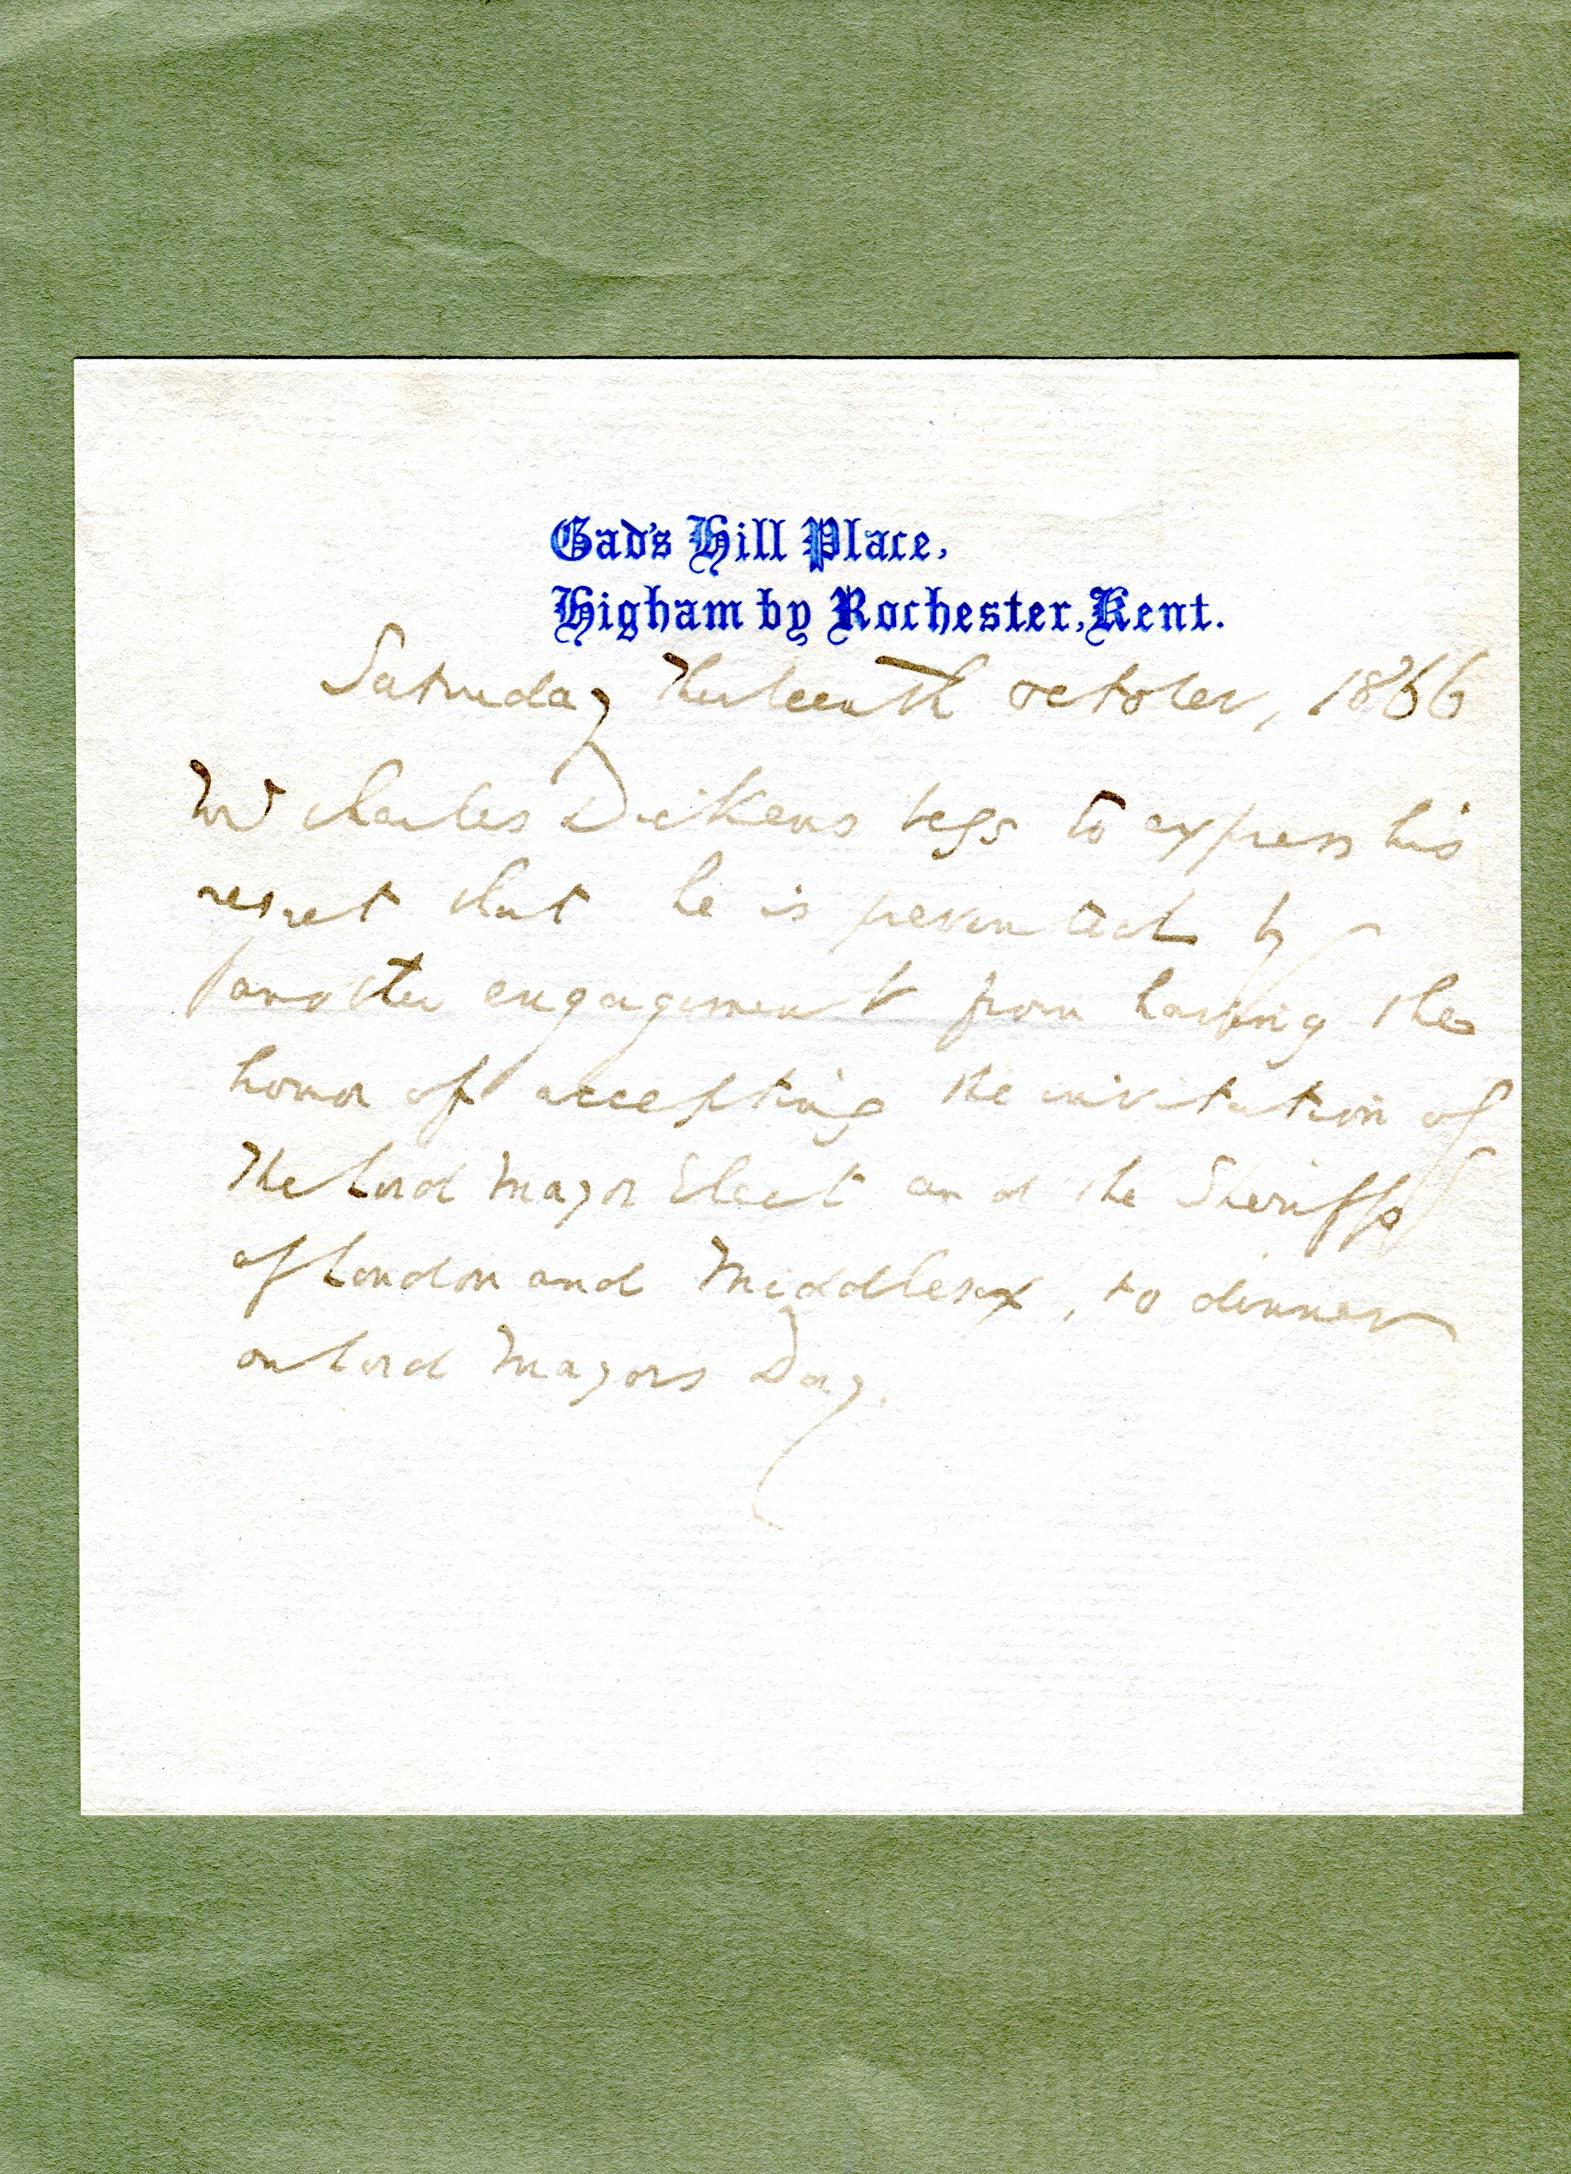 Gad's Hill Place,
Higham by Rochester, Kent.
Saturday Thirteenth October, 1866
Mr Charles Dickens begs to express his
regret that he is prevented by
another engagement from having the
honor of accepting the invitation of
The Lord Mayor Elect and the Sheriffs
of London and Middlesex, to dinner
on Lord Mayors Day.